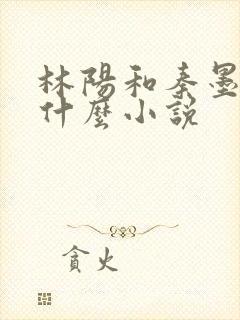 林陽和秦墨
什麼小說
貪火